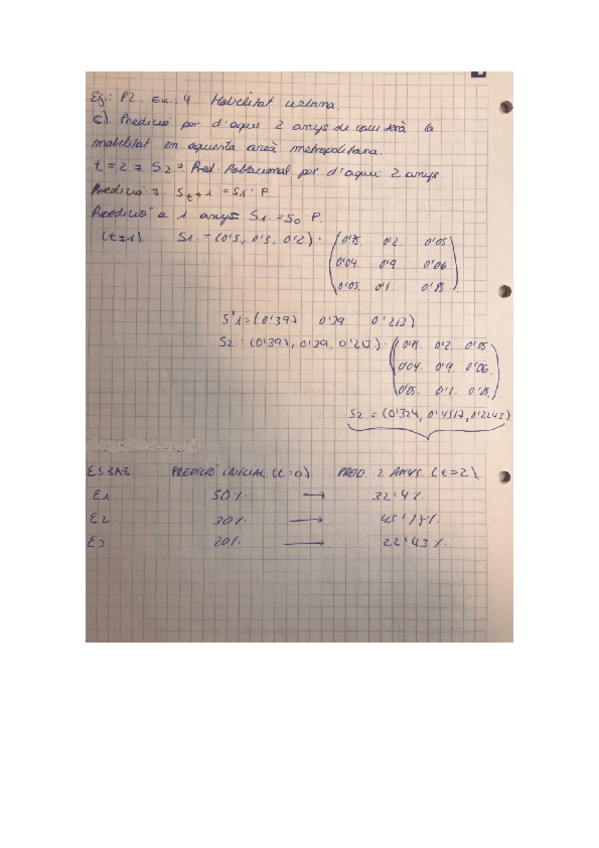 Ej.: P2. Ex. 4 Mobilitat urbana.
c) Predicció per d'aquí 2 anys de com serà la
mobilitat en aquesta àrea metropolitana.
t = 2 → S2 → Pred. Poblacional per d'aquí 2 anys
Predicció → St+1 = S1 · P
Predicció a 1 any → S1 = S0 · P.
(t=1) S1 = (0'5, 0'3, 0'2) · (0'75 0'2 0'05
0'04 0'9 0'06
0'05 0'1 0'85)
S'1 = (0'397 0'39 0'213)
S2 = (0'397, 0'39, 0'213) · (0'75 0'2 0'05
0'04 0'9 0'06
0'05 0'1 0'85)
S2 = (0'324, 0'4517, 0'2243)
ESTAT PREDICCIÓ INICIAL (t=0) PRED. 2 ANYS (t=2)
E1 50% → 32'4%
E2 30% → 45'17%
E3 20% → 22'43%